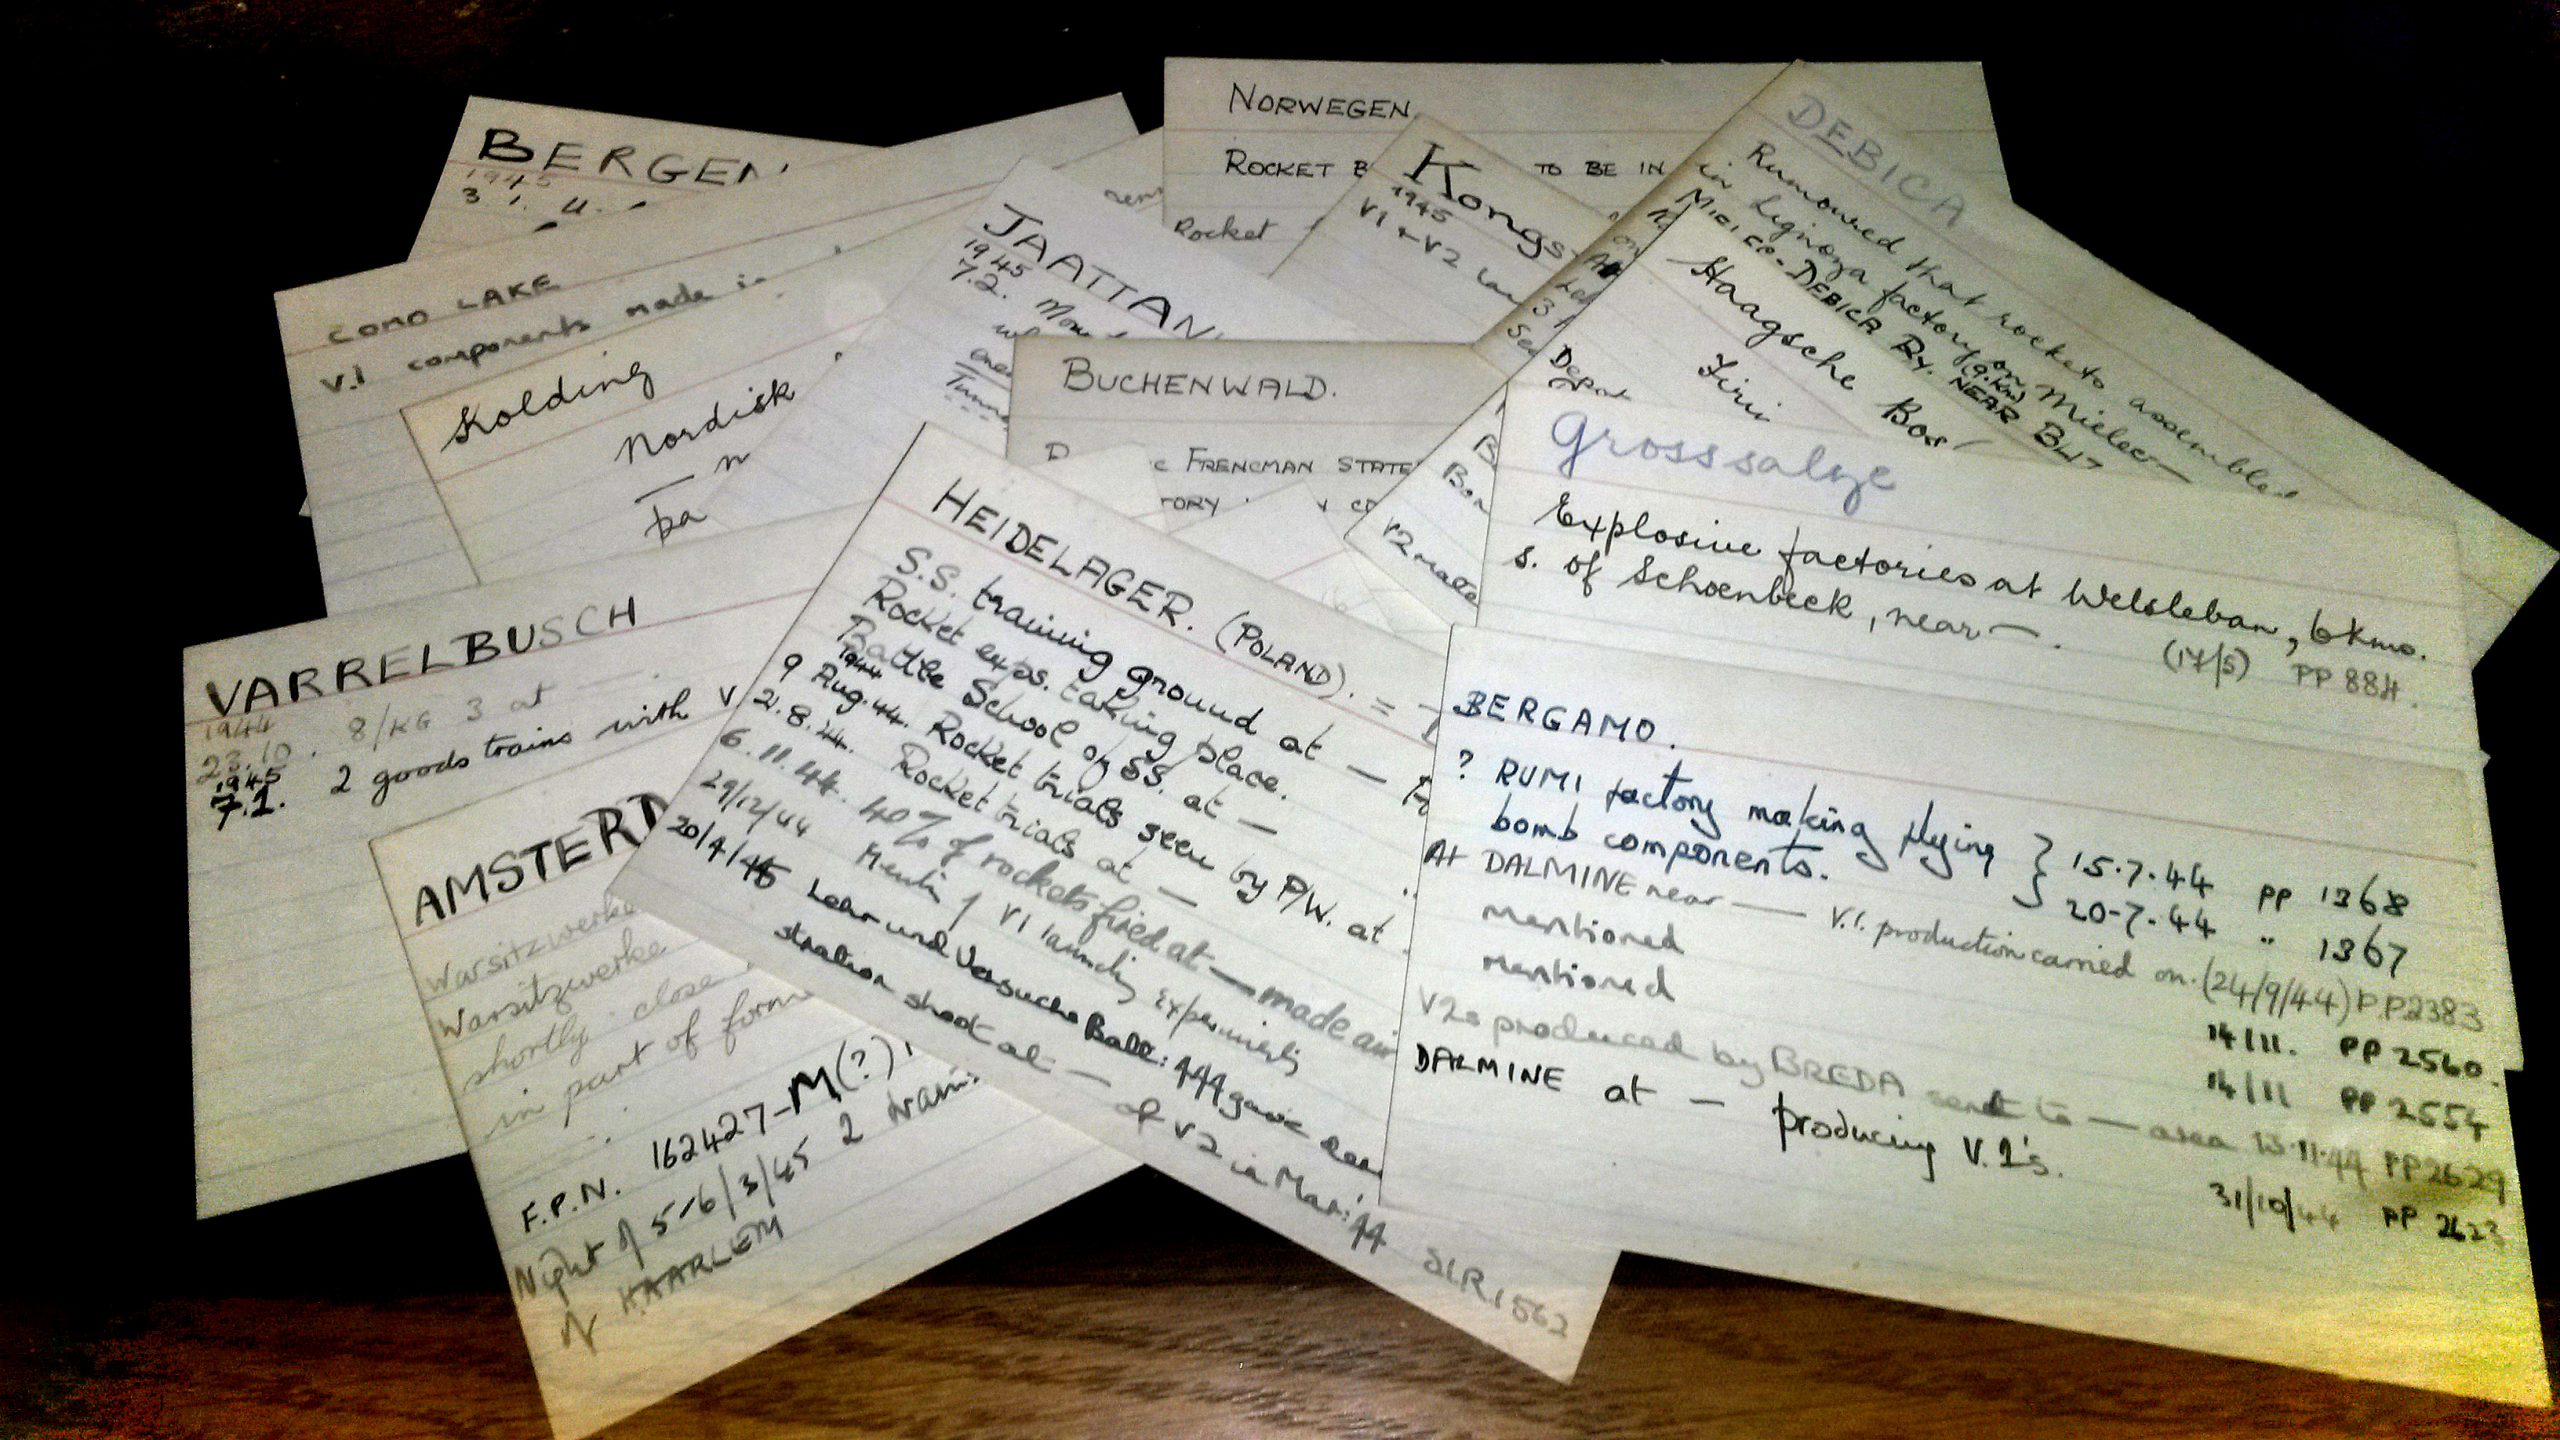 BERGEN
1945
3.1.
COMO LAKE
V.1 components made in
Kolding
Nordisk
pa
JAATTAN
1945
7.2.
NORWEGEN
ROCKET B
TO BE IN
Rocket
Kongs
1945
V1 + V2
DEBICA
Rumoured that rockets assembled
in Lignoza factory on Mielec —
(9. Km)
MIELEC-DEBICA RY. NEAR
Haagsche Bos
Depot
BUCHENWALD.
FRENCMAN STATE
TORY
V2
Grosssalze
Explosive factories at Welsleban, 6 kms.
S. of Schoenbeck, near — .
(17/5) PP 884.
VARRELBUSCH
1944
23.10. 8/KG 3 at — .
1945
7.1. 2 goods trains with V
AMSTERD
Warsitzwerke
Warsitzwerke
shortly close
in part of form
F.P.N. 162427-M(?)
Night of 5-6/3/45 2
N HAARLEM
HEIDELAGER. (POLAND). =
S.S. training ground at —
Rocket exps. taking place.
Battle School of SS. at —
1944
9 Aug. 44. Rocket trials seen by P/W. at
21.8.44. Rocket trials at —
6.11.44. 40% of rockets fired at — made air
29/12/44 Mention of V1 launching experiments
20/4/45 Lehr und Versuchs Batt: 444 gave
stration shoot at — of V2 in Mar: 44
SIR 1562
BERGAMO.
? RUMI factory making flying } 15.7.44 PP 1368
bomb components. } 20.7.44 " 1367
At DALMINE near — V.1. production carried on. (24/9/44) PP2383
mentioned 14/11. PP 2560.
mentioned 14/11 PP 2554
V2s produced by BREDA sent to — area 15.11.44 PP2629
DALMINE at — producing V.1's. 31/10/44 PP 2623